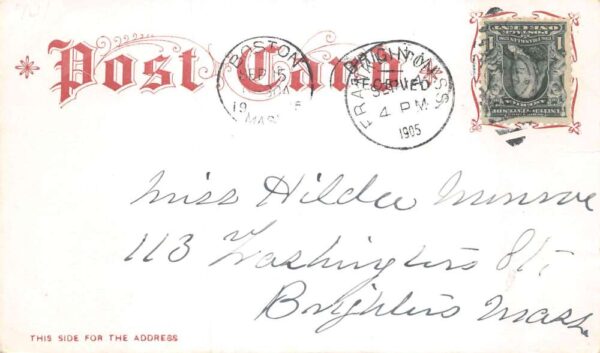 Post Card
BOSTON
SEP 5
MASS
BRIGHTON
RECEIVED
4 PM
1905
Miss Hilda Munroe
113 Washington St.
Brighton Mass
THIS SIDE FOR THE ADDRESS